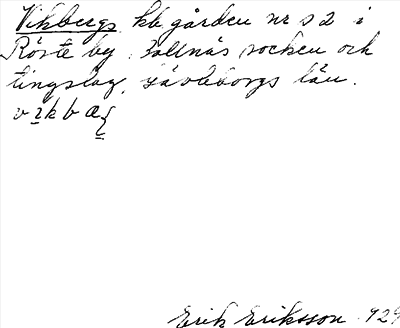 Vikbergs kb gården nr s 2 i
Röste by Bollnäs socken och
tingslag, Gävleborgs län.
Erik Eriksson 1929